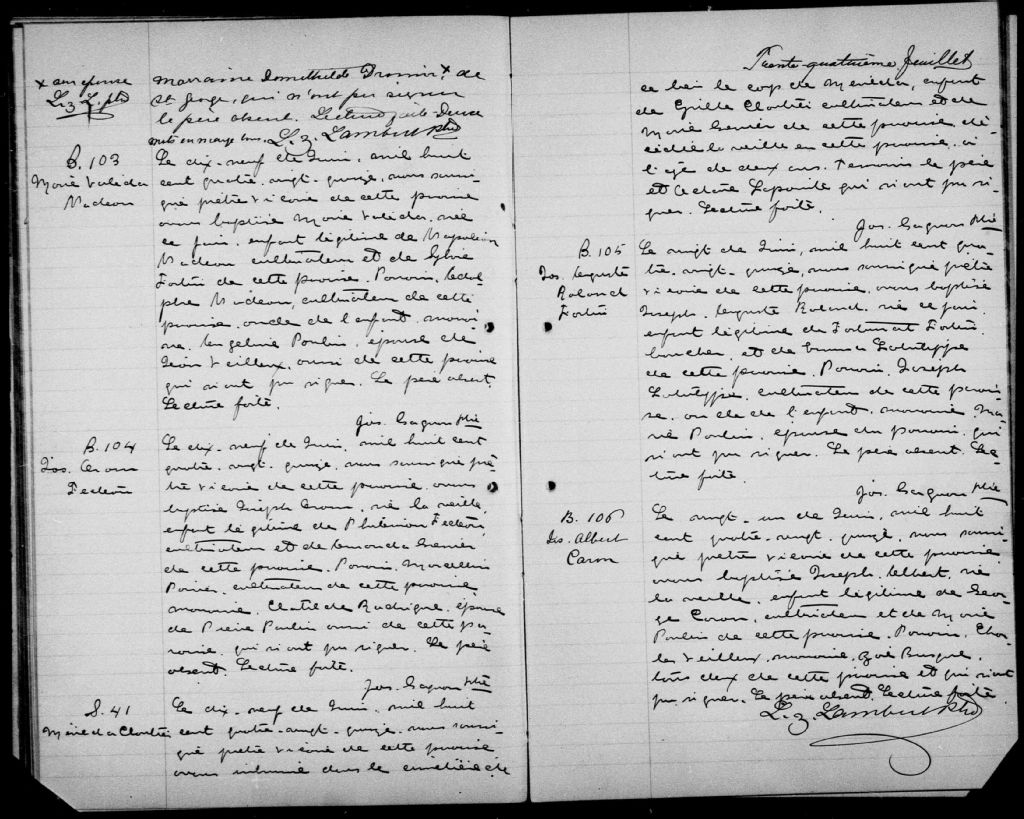 x son épouse
L. Z. L. ptre
marraine Domithilde Drouin x de
St George, qui n'ont pu signer
le père absent. Lecture faite. Deux
mots en marge bons. L. Z. Lambert Ptre
B. 103
Marie
Nadeau
Le dix-neuf de Juin, mil huit
cent quatre-vingt-quinze, nous soussi-
gné prêtre vicaire de cette paroisse
avons baptisé Marie née
ce jour, enfant légitime de Napoléon
Nadeau cultivateur et de
Fortin de cette paroisse. Parrain,
Nadeau, cultivateur de cette
paroisse, oncle de l'enfant, marrai-
ne, Angelina Poulin, épouse de
Veilleux, aussi de cette paroisse
qui n'ont pu signer. Le père absent.
Lecture faite.
Jos. Gagnon Ptre
B. 104
Jos.
Fecteau
Le dix-neuf de Juin, mil huit cent
quatre-vingt-quinze, nous soussigné prê-
tre vicaire de cette paroisse, avons
baptisé Joseph né la veille,
enfant légitime de Philémon Fecteau,
cultivateur et de Grenier
de cette paroisse. Parrain, Marcellin
cultivateur de cette paroisse
marraine, Clotilde Rodrigue, épouse
de Pierre Poulin aussi de cette pa-
roisse, qui n'ont pu signer. Le père
absent. Lecture faite.
Jos. Gagnon Ptre
S. 41
Méréda Cloutier
Le dix-neuf de Juin, mil huit
cent quatre-vingt-quinze, nous soussi-
gné prêtre vicaire de cette paroisse
avons inhumé dans le cimetière de
Trente-quatrième feuillet
ce lieu le corps de Méréda, enfant
de Cloutier cultivateur et de
Marie Grenier de cette paroisse, dé-
cédée la veille en cette paroisse, à
l'âge de deux ans. Témoins le père
et Lapointe qui n'ont pu si-
gner. Lecture faite.
Jos. Gagnon Ptre
B. 105
Jos. Auguste
Roland
Fortin
Le vingt de Juin, mil huit cent qua-
tre-vingt-quinze, nous soussigné prêtre
vicaire de cette paroisse, avons baptisé
Joseph, Auguste Roland, né ce jour,
enfant légitime de Fortunat Fortin,
boucher, et de Emma Latulippe
de cette paroisse. Parrain, Joseph
Latulippe, cultivateur de cette parois-
se, oncle de l'enfant, marraine Ma-
rie Poulin, épouse du parrain, qui
n'ont pu signer. Le père absent. Lec-
ture faite.
Jos. Gagnon Ptre
B. 106
Jos. Albert
Caron
Le vingt-un de Juin, mil huit
cent quatre-vingt-quinze, nous soussi-
gné prêtre vicaire de cette paroisse
avons baptisé Joseph, Albert, né
la veille, enfant légitime de Geor-
ge Caron, cultivateur et de Marie
Poulin de cette paroisse. Parrain, Char-
les Veilleux, marraine, Zoé Busque,
tous deux de cette paroisse et qui n'ont
pu signer. Le père absent. Lecture faite
L. Z. Lambert Ptre